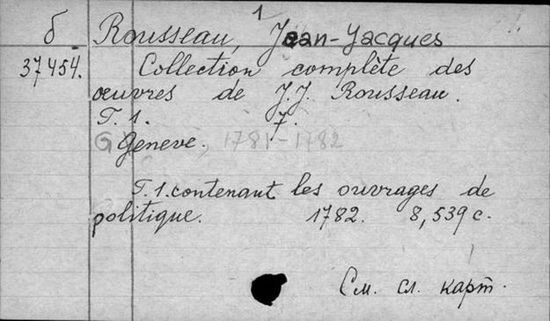 1
б Rousseau, Jean-Jacques
37454. Collection complète des
œuvres de J.J. Rousseau.
T. 1. 7.
G Geneve., 1781-1782
T. 1. contenant les ouvrages de
politique. 1782. 8,539 с.
См. сл. карт.